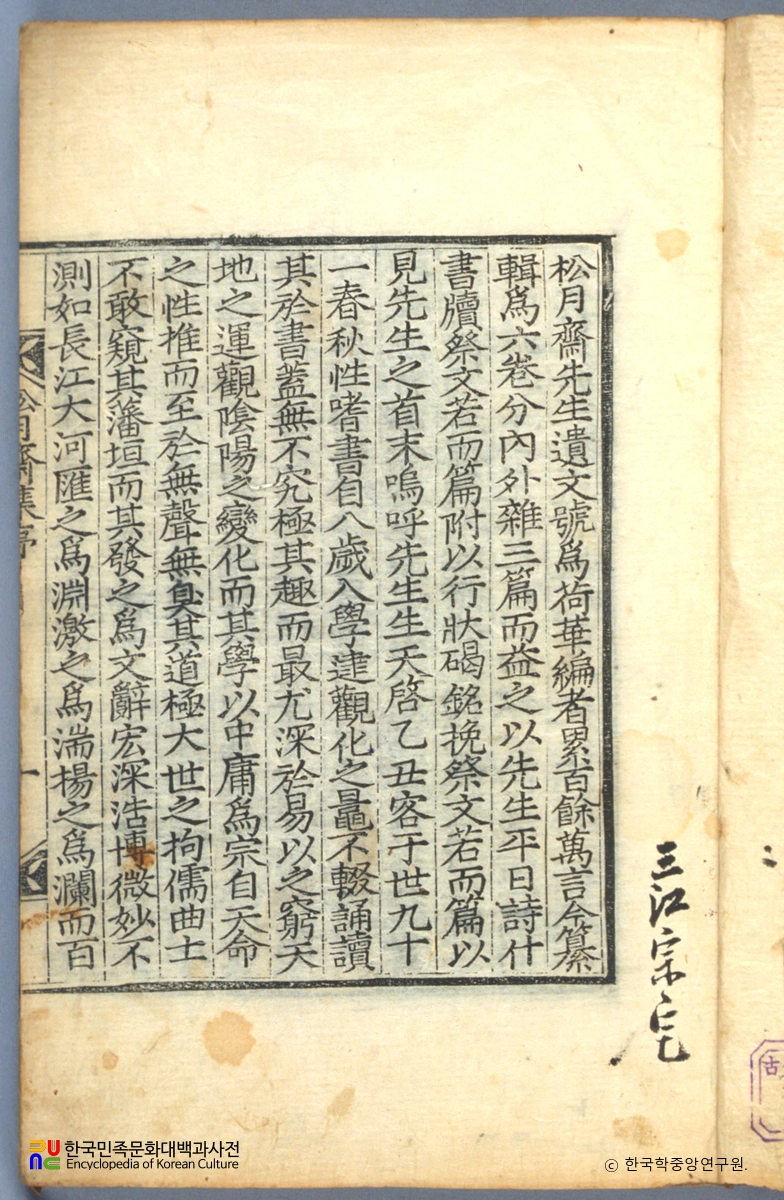 松月齋先生遺文號爲荷華編者累百餘萬言今纂
輯爲六卷分內外雜三篇而益之以先生平日詩什
書牘祭文若而篇附以行狀碣銘挽祭文若而篇以
見先生之首末嗚呼先生生天啓乙丑客于世九十
一春秋性嗜書自八歲入學逮觀化之鼂不輟誦讀
其於書蓋無不究極其趣而最尤深於易以之窮天
地之運觀陰陽之變化而其學以中庸爲宗自天命
之性推而至於無聲無臭其道極大世之拘儒曲士
不敢窺其藩垣而其發之爲文辭宏深浩博微妙不
測如長江大河匯之爲淵激之爲湍楊之爲瀾而百
松月齋集序
一
三江宗宅
古
한국민족문화대백과사전
Encyclopedia of Korean Culture
ⓒ 한국학중앙연구원.